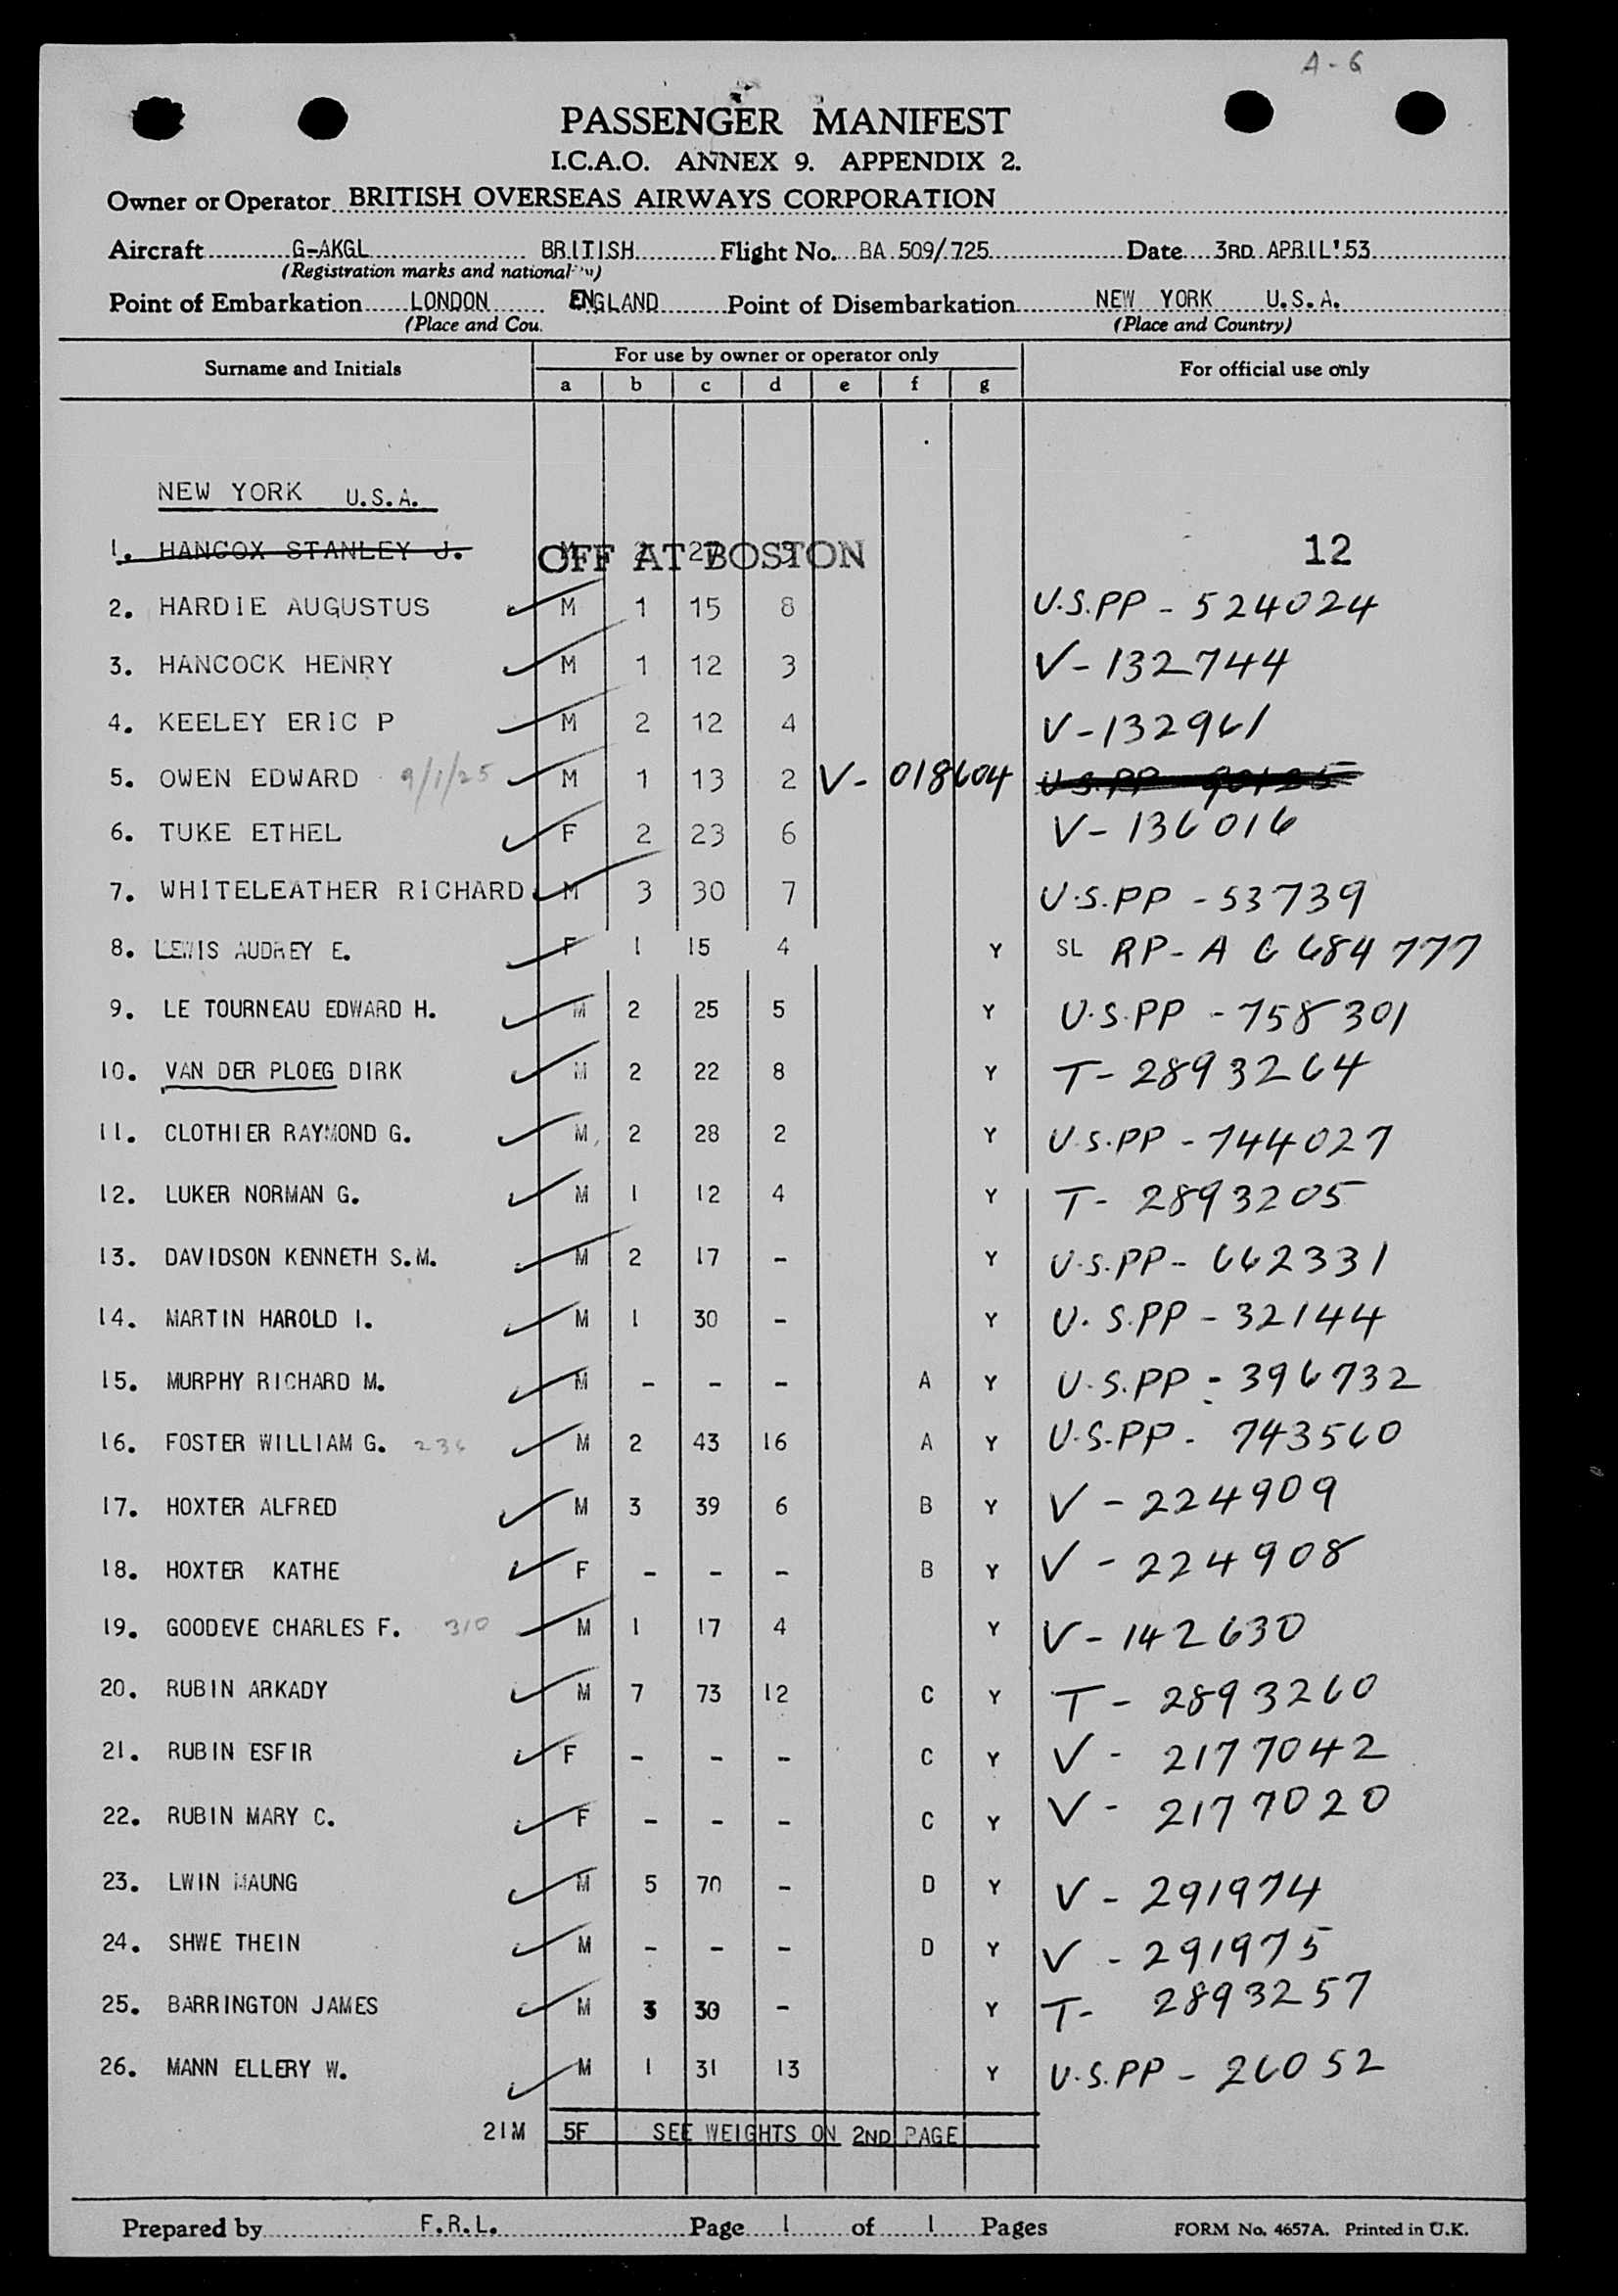 A-6
PASSENGER MANIFEST
I.C.A.O. ANNEX 9. APPENDIX 2.
Owner or Operator BRITISH OVERSEAS AIRWAYS CORPORATION
Aircraft G-AKGL BRITISH Flight No. BA 509/725 Date 3RD APRIL'53
(Registration marks and national
Point of Embarkation LONDON ENGLAND Point of Disembarkation NEW YORK U.S.A.
(Place and Cou. (Place and Country)
Surname and Initials For use by owner or operator only For official use only
a b c d e f g
NEW YORK U.S.A.
1. HANCOX STANLEY J. OFF AT BOSTON 12
2. HARDIE AUGUSTUS M 1 15 8 U.S.PP - 524024
3. HANCOCK HENRY M 1 12 3 V-132744
4. KEELEY ERIC P M 2 12 4 V-132961
5. OWEN EDWARD 9/1/25 M 1 13 2 V- 018604
6. TUKE ETHEL F 2 23 6 V- 136016
7. WHITELEATHER RICHARD M 3 30 7 U.S.PP - 53739
8. LEWIS AUDREY E. F 1 15 4 Y SL RP-A 6 684 777
9. LE TOURNEAU EDWARD H. M 2 25 5 Y U.S.PP - 758301
10. VAN DER PLOEG DIRK M 2 22 8 Y T-2893264
11. CLOTHIER RAYMOND G. M 2 28 2 Y U.S.PP - 744027
12. LUKER NORMAN G. M 1 12 4 Y T- 2893205
13. DAVIDSON KENNETH S.M. M 2 17 - Y U.S.PP- 662331
14. MARTIN HAROLD I. M 1 30 - Y U.S.PP - 32144
15. MURPHY RICHARD M. M - - - A Y U.S.PP - 396732
16. FOSTER WILLIAM G. 236 M 2 43 16 A Y U.S.PP - 743560
17. HOXTER ALFRED M 3 39 6 B Y V - 224909
18. HOXTER KATHE F - - - B Y V - 224908
19. GOODEVE CHARLES F. 310 M 1 17 4 Y V- 142630
20. RUBIN ARKADY M 7 73 12 C Y T - 2893260
21. RUBIN ESFIR F - - - C Y V - 2177042
22. RUBIN MARY C. F - - - C Y V - 2177020
23. LWIN MAUNG M 5 70 - D Y V - 291974
24. SHWE THEIN M - - - D Y V - 291975
25. BARRINGTON JAMES M 3 30 - Y T- 2893257
26. MANN ELLERY W. M 1 31 13 Y U.S.PP - 26052
21M 5F SEE WEIGHTS ON 2ND PAGE
Prepared by F.R.L. Page 1 of 1 Pages FORM No. 4657A. Printed in U.K.